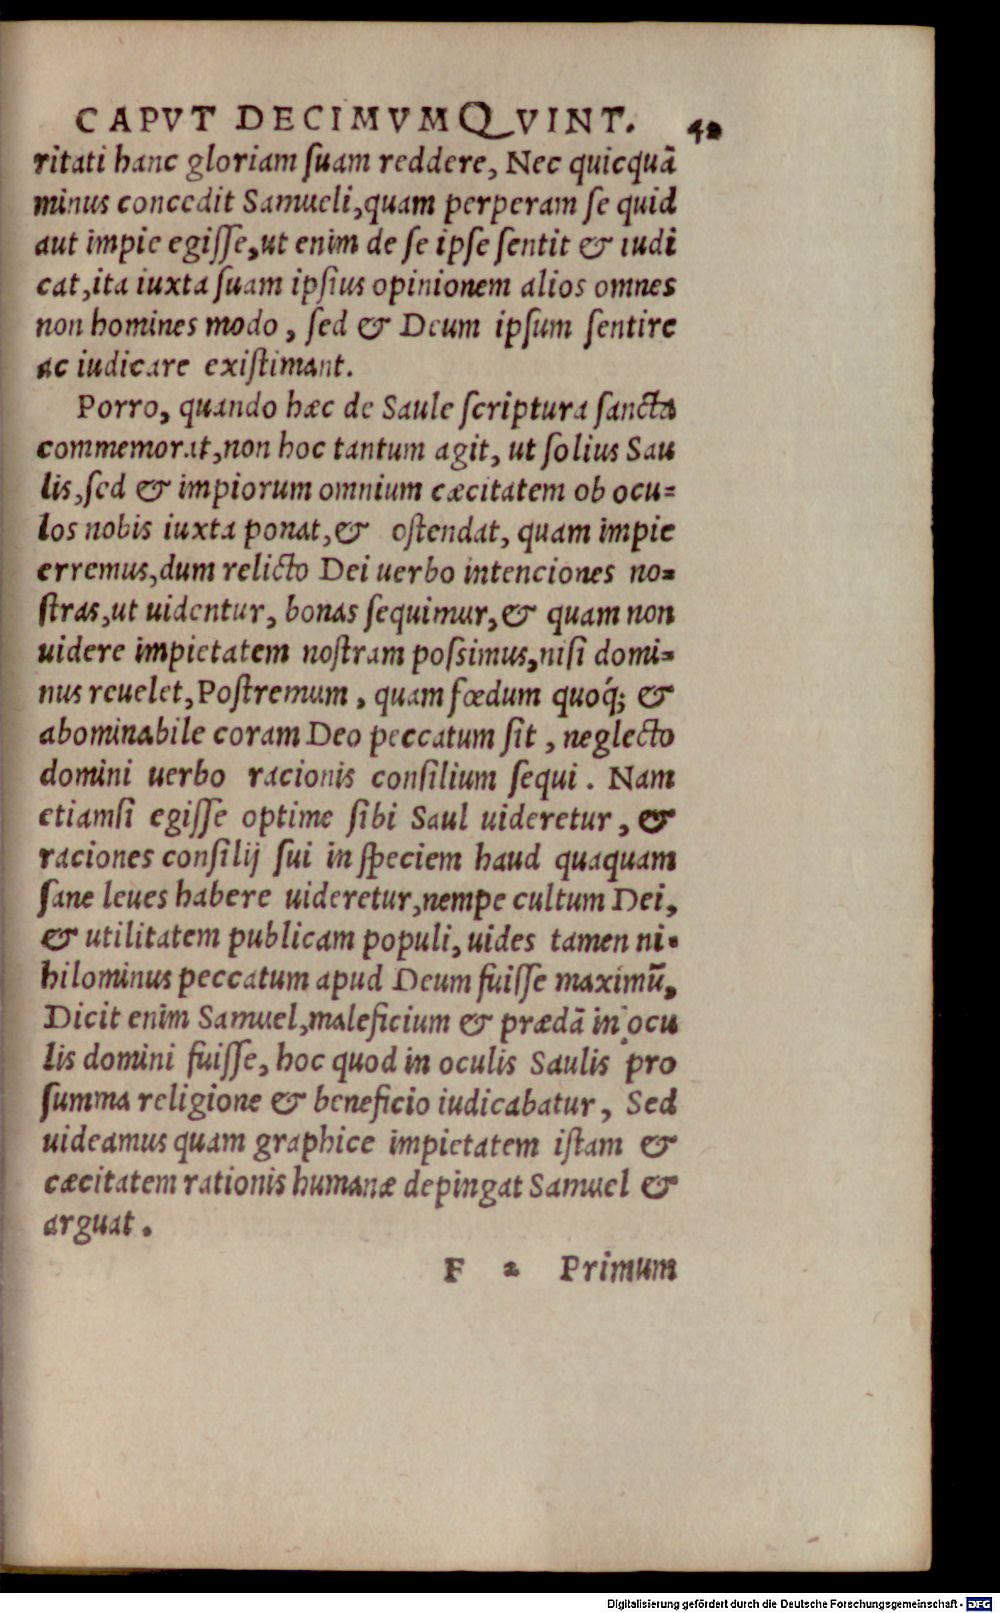 CAPVT DECIMVM QVINT. 42
ritati hanc gloriam ſuam reddere, Nec quicquã
minus concedit Samueli,quam perperam ſe quid
aut impie egiſſe,ut enim de ſe ipſe ſentit & iudi
cat,ita iuxta ſuam ipſius opinionem alios omnes
non homines modo, ſed & Deum ipſum ſentire
ac iudicare exiſtimant.
Porro, quando hæc de Saule ſcriptura ſancta
commemorat,non hoc tantum agit, ut ſolius Sau
lis,ſed & impiorum omnium cæcitatem ob ocu=
los nobis iuxta ponat,& oſtendat, quam impie
erremus,dum relicto Dei uerbo intenciones no=
ſtras,ut uidentur, bonas ſequimur,& quam non
uidere impietatem noſtram poſsimus,niſi domi=
nus reuelet,Poſtremum, quam fœdum quoq́; &
abominabile coram Deo peccatum ſit, neglecto
domini uerbo racionis conſilium ſequi. Nam
etiamſi egiſſe optime ſibi Saul uideretur, &
raciones conſilij ſui in ſpeciem haud quaquam
ſane leues habere uideretur,nempe cultum Dei,
& utilitatem publicam populi, uides tamen ni=
hilominus peccatum apud Deum fuiſſe maximũ,
Dicit enim Samuel,maleficium & prædã in ocu
lis domini fuiſſe, hoc quod in oculis Saulis pro
ſumma religione & beneficio iudicabatur, Sed
uideamus quam graphice impietatem iſtam &
cæcitatem rationis humanæ depingat Samuel &
arguat.
F 2 Primum
Digitalisierung gefördert durch die Deutsche Forschungsgemeinschaft - DFG